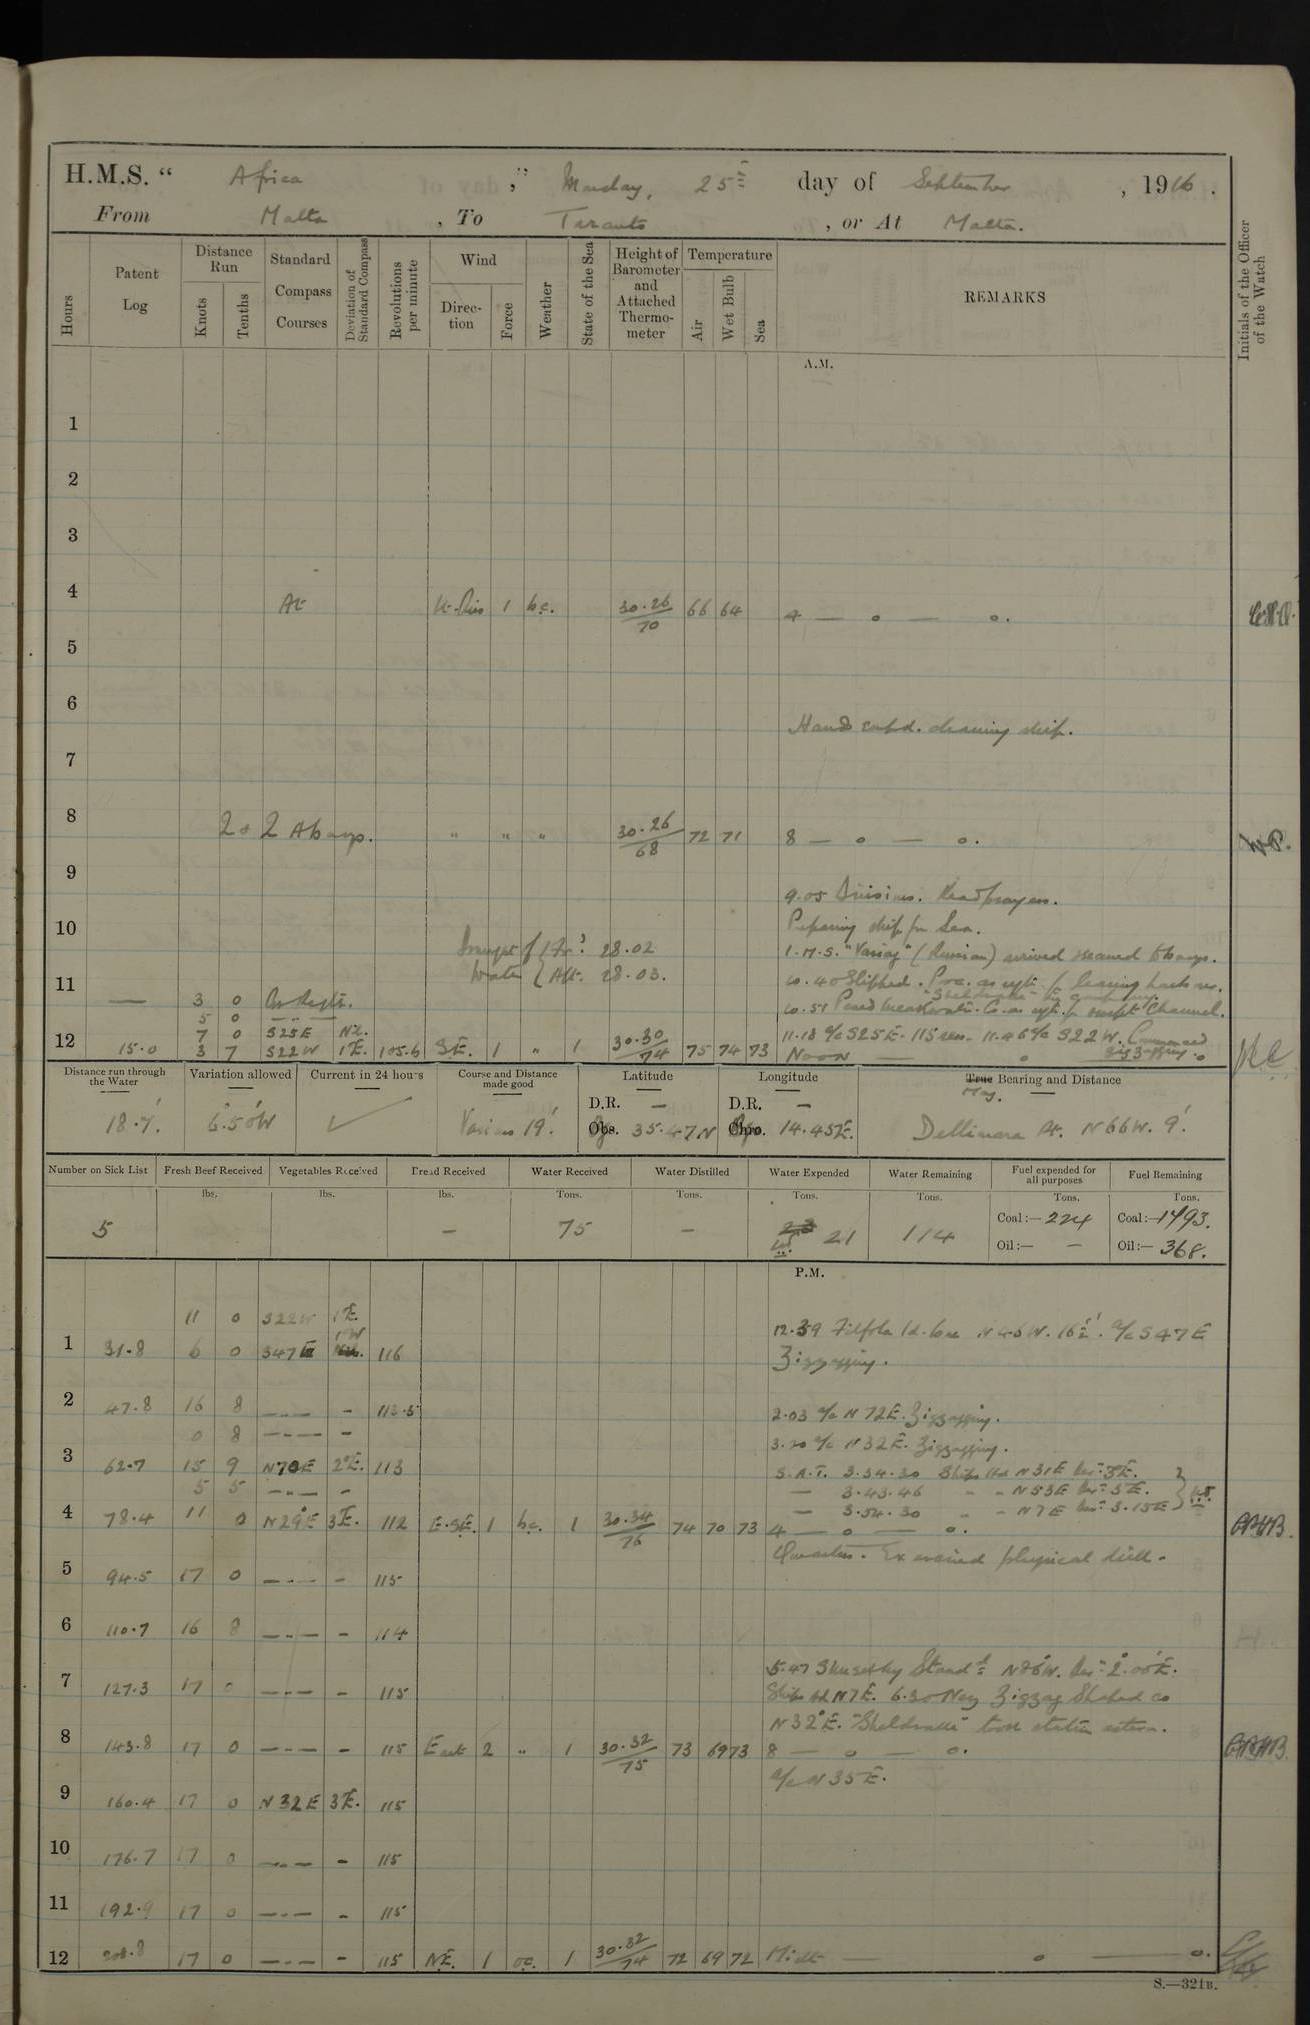 H.M.S. “ Africa ,” Monday, 25th day of September , 1916 .
From Malta , To Taranto , or At Malta.
Hours
Patent Log
Distance Run
Knots
Tenths
Standard Compass Courses
Deviation of Standard Compass
Revolutions per minute
Wind
Direction
Force
Weather
State of the Sea
Height of Barometer and Attached Thermometer
Temperature
Air
Wet Bulb
Sea
REMARKS
Initials of the Officer of the Watch
A.M.
1
2
3
4 At 1 b.c. 30.26/70 66 64 4 — o — o.
5
6
Hands empd. cleaning ship.
7
8 2 & 2 A bays. " " " 30.26/68 72 71 8 — o — o. W.P.
9
9.05 Divisions. Read prayers.
10 Preparing ship for Sea.
Draught of Water { For'd: 28.02
{ Aft. 28.03.
I.M.S. "Variag" (Russian) arrived
10.40 Slipped. Proc. as reqt. for leaving harbour.
"Sheldrake" in company.
11 — 3 0 As Reqte.
5 0 — " —
10.51 Passed breakwater. Co. as reqt. for swept Channel.
7 0 S25E Nil.
11.18 a/c S25E. 115 revs. 11.46 a/c S22W. Commenced Zigzagging.
12 15.0 3 7 S22W 1°E. 105.6 S.E. 1 " 1 30.30/74 75 74 73 Noon — o — o
Distance run through the Water
Variation allowed
Current in 24 hours
Course and Distance made good
Latitude
Longitude
True Bearing and Distance
Mag.
18.7' 6°.50'W Various 19' D.R. — Obs. 35.47N D.R. — Chro. 14.45E. Dellimara Pt. N66W. 9'.
Number on Sick List
Fresh Beef Received
Vegetables Received
Bread Received
Water Received
Water Distilled
Water Expended
Water Remaining
Fuel expended for all purposes
Fuel Remaining
lbs. lbs. lbs. Tons. Tons. Tons. Tons. Tons. Tons.
5 — 75 — 21 114 Coal:— 224 Coal:— 1493.
Oil:— — Oil:— 368.
P.M.
11 0 S22W 1°E.
12.39 Filfola Id. bore N46W. 16½'. a/c S47E
1 31.8 6 0 S47E 1°W 116 Zigzagging.
2 47.8 16 8 — " — - 113.5 2.03 a/c N72E. Zigzagging.
0 8 — " — -
3.20 a/c N32E. Zigzagging.
3 62.7 15 9 N70E 2°E. 113
S.A.T. 3.34.30 Ships Hd N31E Devn 3°E.
5 5 — " — -
— 3.43.46 " " N53E Devn 3°E.
— 3.54.30 " " N7E Devn 3.15E
4 78.4 11 0 N29°E 3°E. 112 E.S.E. 1 b.c. 1 30.34/76 74 70 73 4 — o — o.
Quarters. Exercised physical drill.
5 94.5 17 0 — " — - 115
6 110.7 16 8 — " — - 114
5.47
7 127.3 17 0 — " — - 115
Ships Hd N7E. 6.30 Neg Zigzag Shaped co
N32°E. "Sheldrake" took station astern.
8 143.8 17 0 — " — - 115 East 2 " 1 30.32/75 73 69 73 8 — o — o.
a/c N35E.
9 160.4 17 0 N32E 3°E. 115
10 176.7 17 0 — " — - 115
11 192.9 17 0 — " — - 115
12 208.8 17 0 — " — - 115 N.E. 1 o.c. 1 30.32/74 72 69 72 Midt — o — o.
S.—321B.